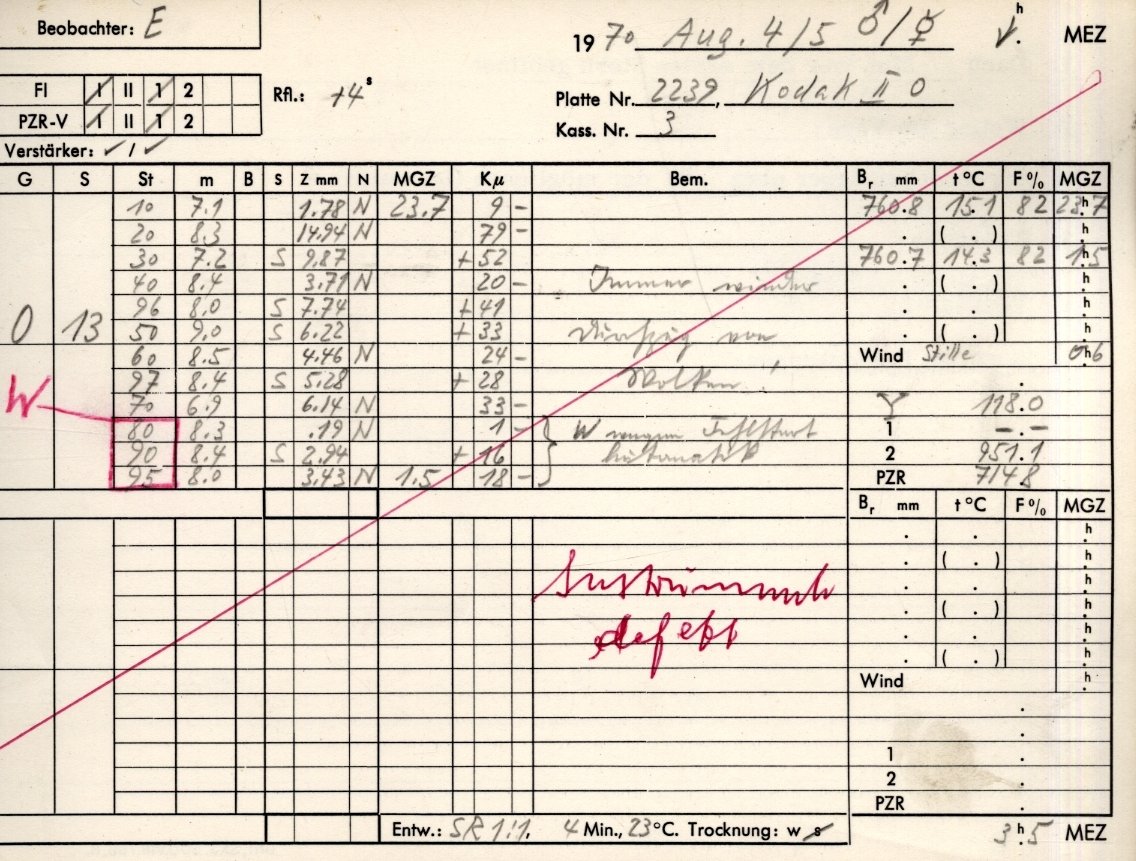 Beobachter: E
19 70 Aug. 4/5 ♂/☿ h . MEZ
FI I II 1 2
PZR-V I II 1 2
Rfl.: +4 s
Platte Nr. 2239, Kodak II O
Kass. Nr. 3
Verstärker: ✓ / ✓
G S St m B S Z mm N MGZ Kμ Bem. Br mm t°C F% MGZ
10 7.1 1.78 N 23.7 9 – 760.8 15.1 82 23h.7
20 8.3 14.94 N 79 – . ( . ) h.
30 7.2 S 9.87 + 52 760.7 14.3 82 1h.5
40 8.4 3.71 N 20 – Immer wieder . ( . ) h.
96 8.0 S 7.74 + 41 . . h.
0 13 50 9.0 S 6.22 + 33 von . ( . ) h.
60 8.5 4.46 N 24 – Wind Stille 0h.6
97 8.4 S 5.28 + 28 Wolken! .
W 70 6.9 6.14 N 33 – Y 118.0
80 8.3 .19 N 1 – W wegen Fehlstart 1 –.–
90 8.4 S 2.94 + 16 Automatik 2 951.1
95 8.0 3.43 N 1.5 18 – PZR 714.8
Br mm t°C F% MGZ
. . h.
. ( . ) h.
. . h.
Instrument
. ( . ) h.
defekt
. . h.
. ( . ) h.
Wind h.
.
.
1 .
2 .
PZR .
Entw.: SR 1:1, 4 Min., 23°C. Trocknung: w s
3h.5 MEZ